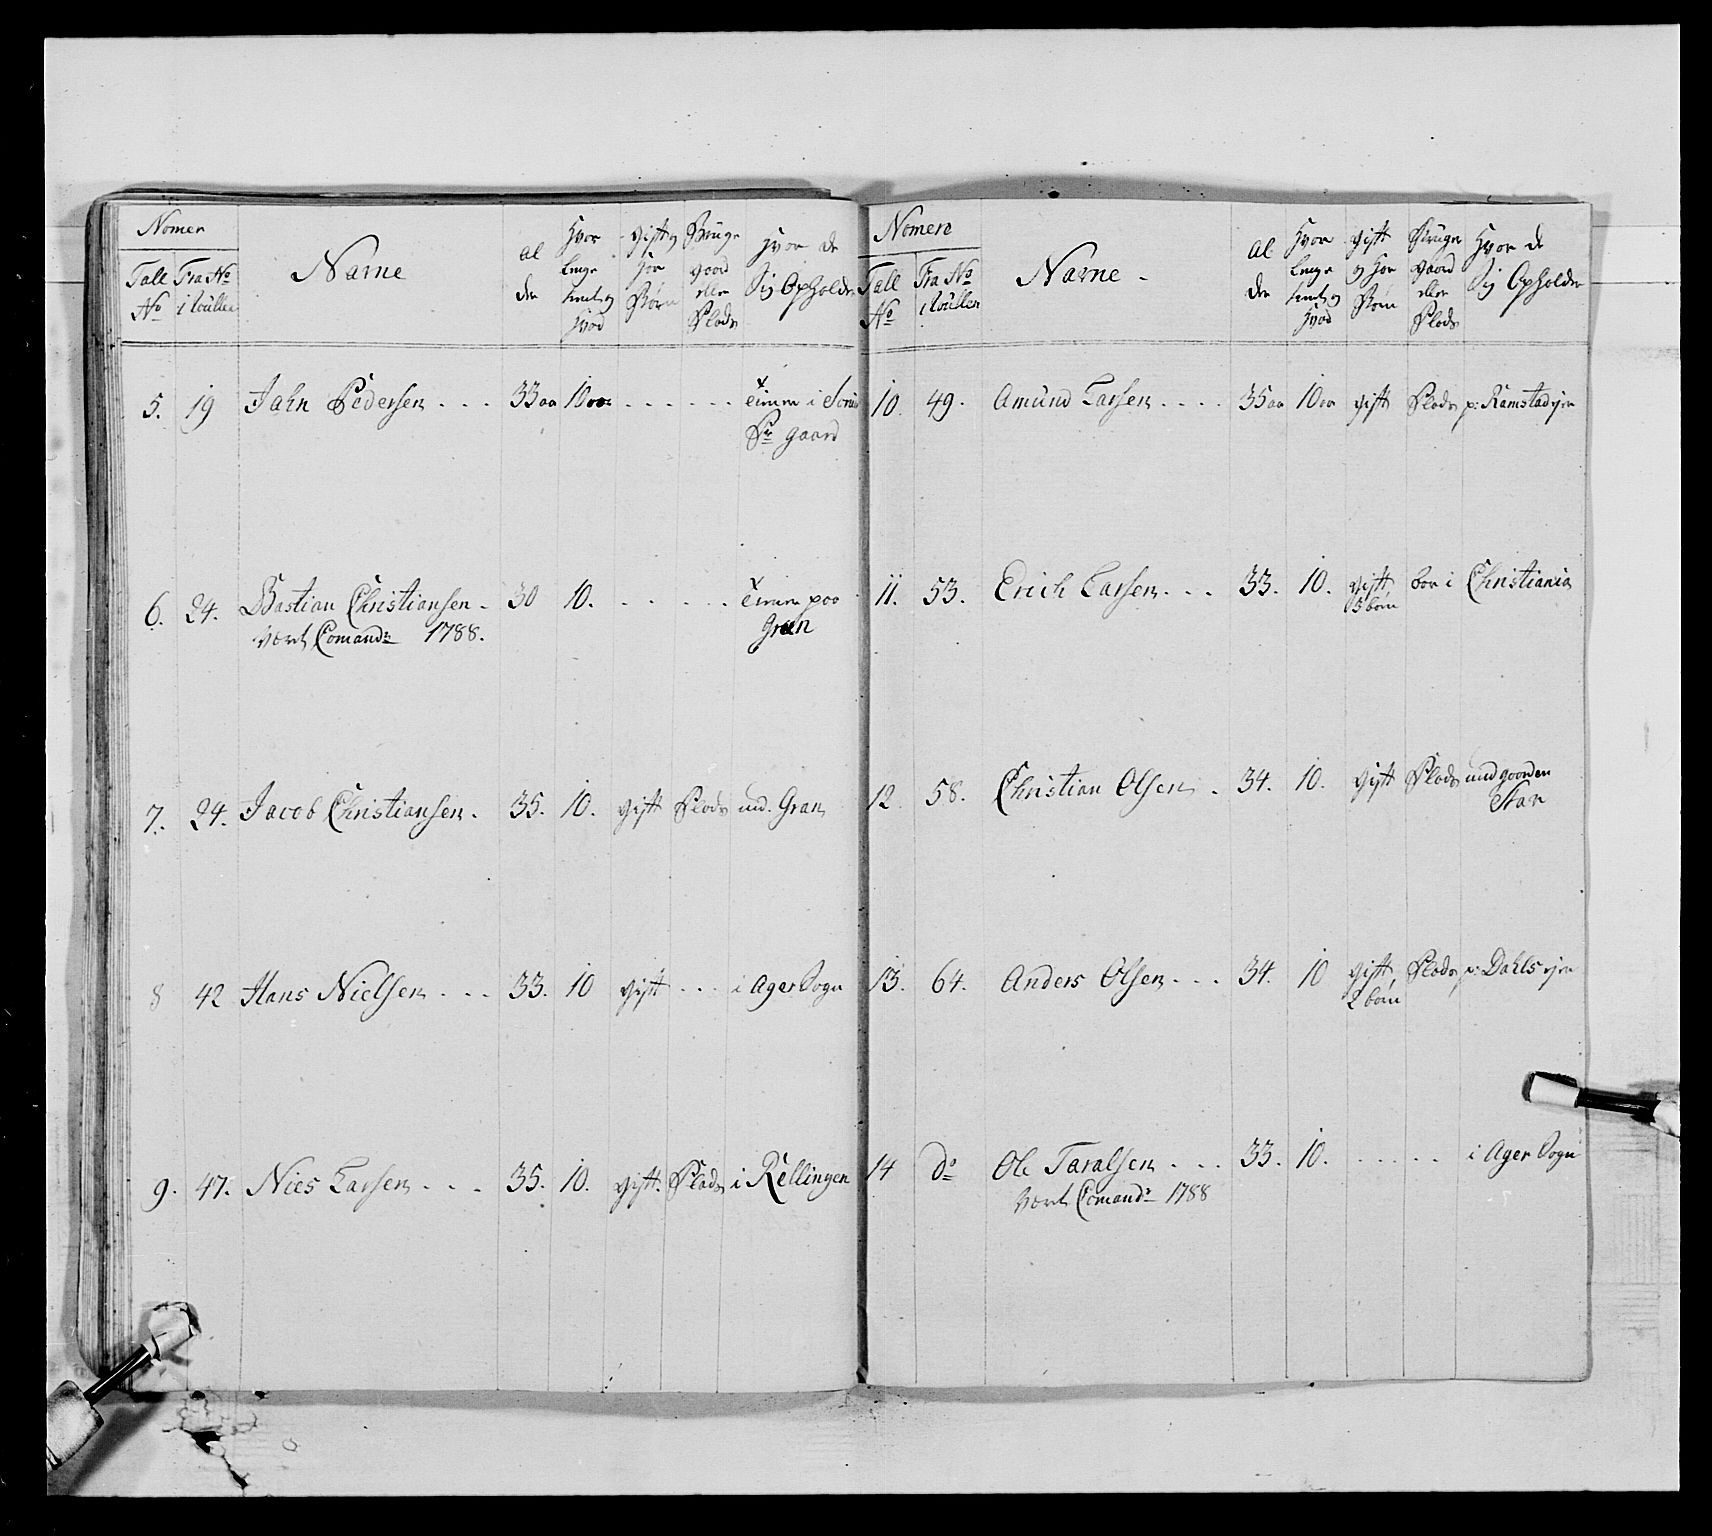 Nomer
Tall No
Fra No i Roullen
Name
Alder
Hvor lenge tient og hvad
Gift og hor Børn
Bruger gaard eller Plads
Hvor de sig Opholder
5. 19 Jahn Pedersen . . . 33 aar 10 aar . . . . . . tiener i
Pr. gaard
6. 24. Bastian Christiansen - 30 10. . . . . . . tiener paa
Gran
Vært Comandr 1788.
7. 24. Jacob Christiansen . 35. 10. gift Plads und. Gran
8 42 Hans Nielsen . . . 33. 10 gift . . . i Ager Sogn
9. 47. Nies Larsen . . . 35. 10. gift. Plads i Rellingen
Nomere
Tall No
Fra No i Roullen
Name -
Alder
Hvor lenge tient og hvad
gift og hor Børn
Bruger gaard eller Plads
Hvor de sig Opholder
10. 49. Amund Larsen . . . . 35 aar 10 aar gift Plads p: Ramstad ejer
11. 53. Erich Larsen . . . 33. 10. gift boe i Christiania
3 børn
12. 58. Christian Olsen . 34. 10. gift Plads und gaarden
13. 64. Anders Olsen . . . 34. 10 gift, Plads p: Dahls ejer
2 børn
14 do Ole Taralsen . . . 33. 10. . . . . . i Ager Sogn
Vært Comandr 1788